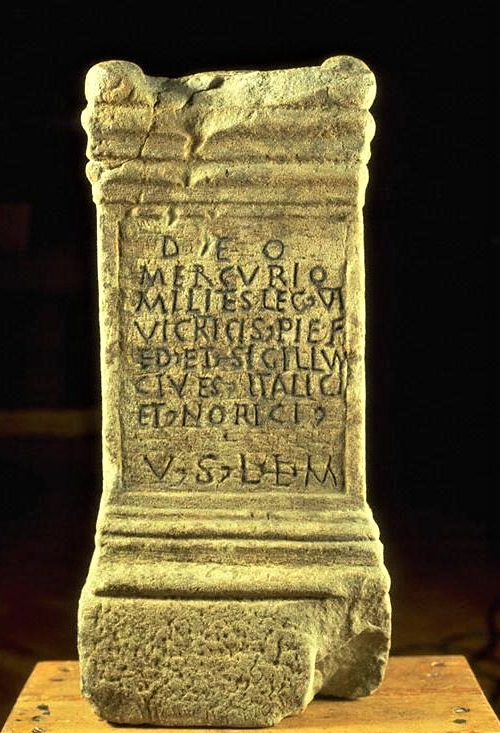 DEO
MERCVRIO
MILITES LEG VI
VICTRICIS PIE F
ED ET SIGILLVM
CIVES ITALICI
ET NORICI
V S L L M